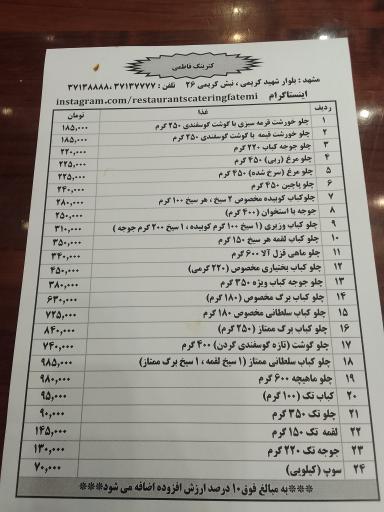 کترینگ فاطمی
مشهد : بلوار شهید کریمی ، نبش کریمی ۲۶ تلفن : ۳۷۱۳۷۷۷۷ ، ۳۷۱۳۸۸۸۸
اینستاگرام instagram.com/restaurantscateringfatemi
ردیف غذا تومان
۱ چلو خورشت قرمه سبزی با گوشت گوسفندی ۲۵۰ گرم ۱۸۵,۰۰۰
۲ چلو خورشت قیمه با گوشت گوسفندی ۲۵۰ گرم ۱۸۵,۰۰۰
۳ چلو جوجه کباب ۲۲۰ گرم ۲۲۰,۰۰۰
۴ چلو مرغ (ربی) ۴۵۰ گرم ۲۲۵,۰۰۰
۵ چلو مرغ (سرخ شده) ۴۵۰ گرم ۲۲۵,۰۰۰
۶ چلو پاچین ۴۵۰ گرم ۲۴۰,۰۰۰
۷ چلوکباب کوبیده مخصوص ۲ سیخ ، هر سیخ ۱۰۰ گرم ۲۸۰,۰۰۰
۸ جوجه با استخوان (۴۰۰ گرم) ۲۵۰,۰۰۰
۹ چلو کباب وزیری (۱ سیخ ۱۰۰ گرم کوبیده ، ۱ سیخ ۲۰۰ گرم جوجه ) ۳۱۰,۰۰۰
۱۰ چلو کباب لقمه هر سیخ ۱۵۰ گرم ۳۵۰,۰۰۰
۱۱ چلو ماهی قزل آلا ۶۰۰ گرم ۳۴۰,۰۰۰
۱۲ چلو کباب بختیاری مخصوص (۲۲۰ گرمی) ۴۵۰,۰۰۰
۱۳ چلو جوجه کباب ویژه ۳۵۰ گرم ۳۸۰,۰۰۰
۱۴ چلو کباب برگ مخصوص (۱۸۰ گرم) ۶۳۰,۰۰۰
۱۵ چلو کباب سلطانی مخصوص ۱۸۰ گرم ۷۲۵,۰۰۰
۱۶ چلو کباب برگ ممتاز (۲۵۰ گرم) ۸۴۰,۰۰۰
۱۷ چلو گوشت (تازه گوسفندی گردن) ۴۰۰ گرم ۷۴۰,۰۰۰
۱۸ چلو کباب سلطانی ممتاز (۱ سیخ لقمه ، ۱ سیخ برگ ممتاز) ۹۸۵,۰۰۰
۱۹ چلو ماهیچه ۶۰۰ گرم ۹۸۰,۰۰۰
۲۰ کباب تک (۱۰۰ گرم) ۹۵,۰۰۰
۲۱ چلو تک ۳۵۰ گرم ۹۰,۰۰۰
۲۲ لقمه تک ۱۵۰ گرم ۱۴۵,۰۰۰
۲۳ جوجه تک ۲۲۰ گرم ۱۳۰,۰۰۰
۲۴ سوپ (کیلویی) ۷۰,۰۰۰
***به مبالغ فوق ۱۰ درصد ارزش افزوده اضافه می شود***